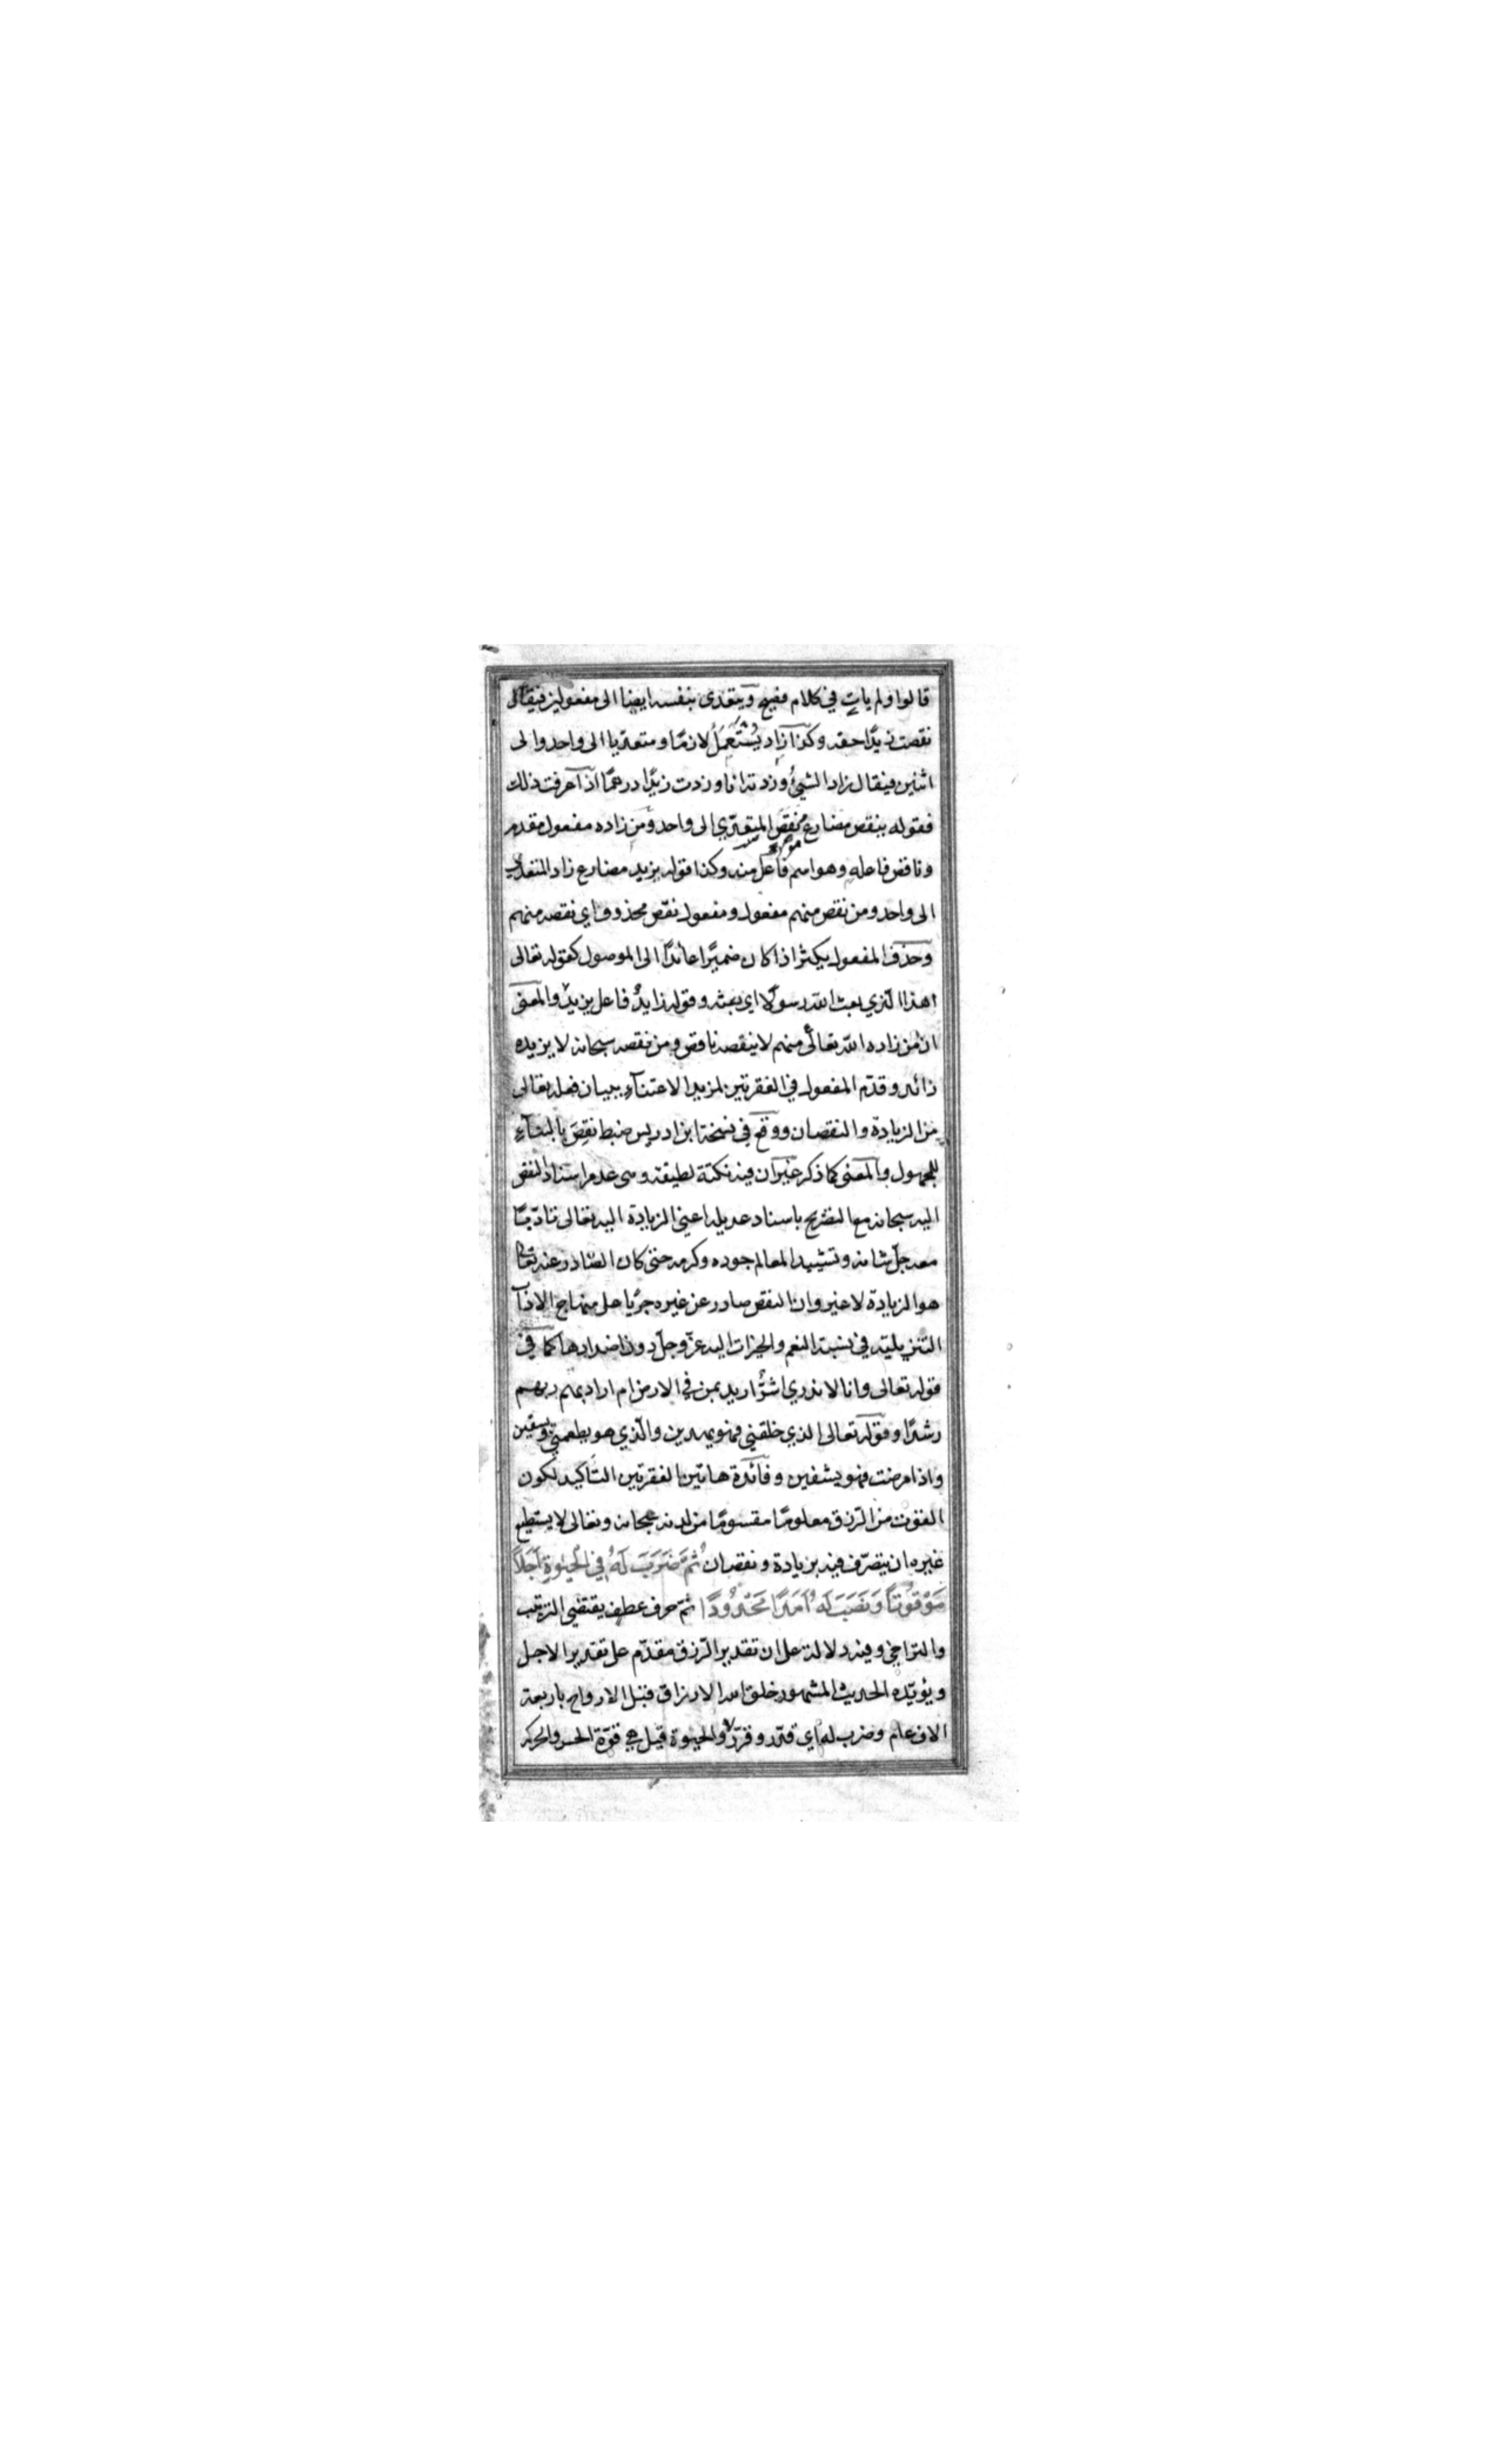 قالوا ولم يات في كلام فصيح ويتعدى بنفسه ايضا الى مفعولين فيقال
نقصت زيدًا حقه وكذا زاد يُسْتَعمَلُ لازمًا ومتعديا الى واحد والى
اثنين فيقال زاد الشيُ وزدته انا وزدت زيدًا درهمًا اذا عرفت ذلك
فقوله ينقص مضارع نقص المتعدي الى واحد ومن زاده مفعول مقدم
وناقص فاعله وهو اسم فاعل منه وكذا قوله يزيد مضارع زاد المتعدي
الى واحد ومن نقص منهم مفعوله ومفعول نقص محذوف اي نقصه منهم
وحذف المفعول يكثر اذا كان ضميرًا عائدًا الى الموصول كقوله تعالى
اهذا الذي بعث الله رسولًا اي بعثه وقوله زايدٌ فاعل يزيد والمعنى
ان من زاده الله تعالى منهم لا ينقصه ناقص ومن نقصه سبحانه لا يزيده
زائد وقدم المفعول في الفقرتين لمزيد الاعتناء ببيان فعله تعالى
من الزيادة والنقصان ووقع في نسخة ابن ادريس ضبط نقِصَ بالبناء
للمجهول والمعنى كما ذكر غير ان فيه نكتة لطيفة وهي عدم اسناد النقص
اليه سبحانه مع التصريح باسناد عديله اعني الزيادة اليه تعالى تادّبًا
معه جلّ شانه وتشييدا لمعالم جوده وكرمه حتى كان الصّادر عنه تعالى
هو الزيادة لا غير وان النقص صادر عن غيره جريًا على منهاج الاداب
التنزيليّه في نسبة النعم والخيرات اليه عزّ وجلّ دون اضدادها كما في
قوله تعالى وانا لا ندري اشرٌّ اريد بمن في الارض ام اراد بهم ربهم
رشدًا وقوله تعالى الذي خلقني فهو يهدين والّذي هو يطعمني ويسقين
واذا مرضت فهو يشفين وفائدة هاتين الفقرتين التاكيد لكون
القوت من الرّزق معلومًا مقسومًا من لدنه سبحانه وتعالى لا يستطيع
غيره ان يتصرّف فيه بزيادة ونقصان ثُمَّ ضَرَبَ لَهُ فِي الْحَيٰوةِ اَجَلًا
مَوْقُوتًا وَنَصَبَ لَهُ اَمَدًا مَحْدُودًا ثمّ حرف عطف يقتضي الترتيب
والتراخي وفيه دلالة على ان تقدير الرّزق مقدّم على تقدير الاجل
ويؤيّده الحديث المشهور خلق الله الارزاق قبل الارواح باربعة
الاف عام وضرب له اي قدّر وقرّر والحيٰوة قيل هي قوّة الحس والحركة